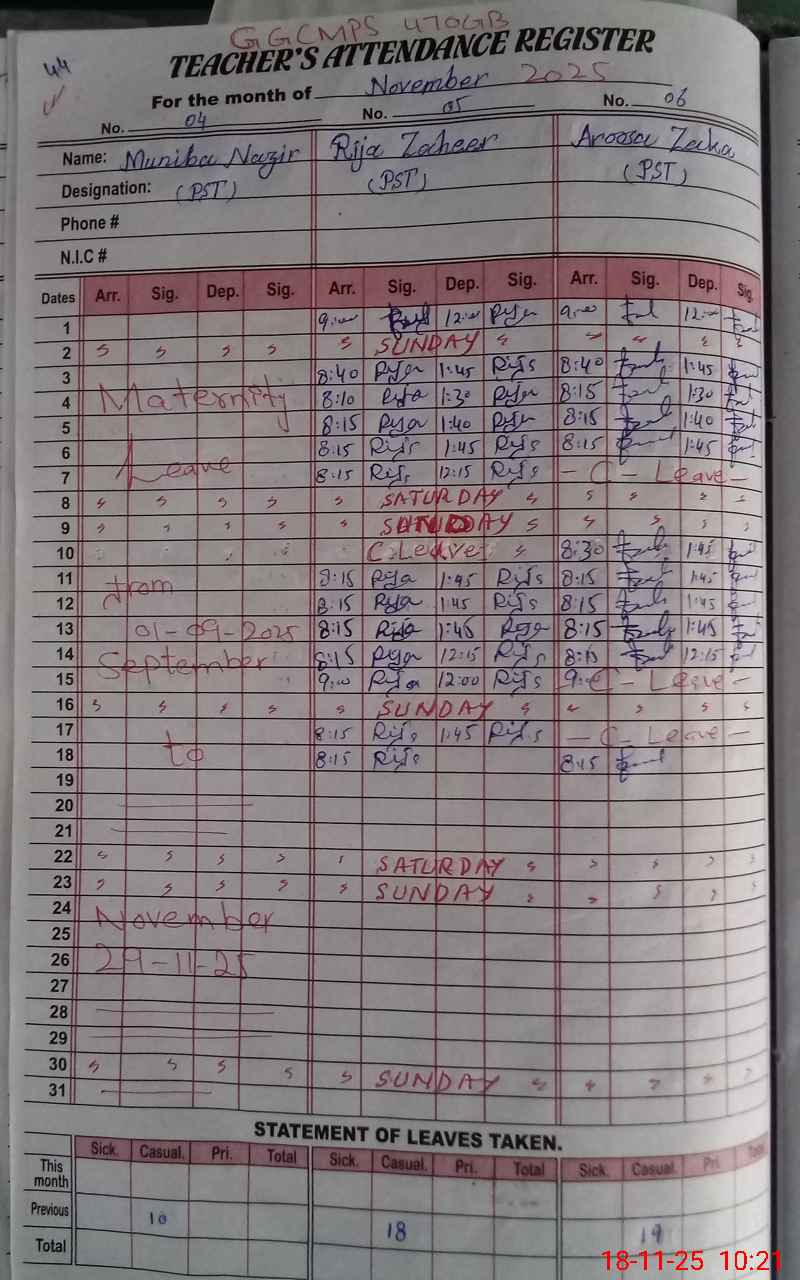 GGCMPS 470GB
44
TEACHER'S ATTENDANCE REGISTER
For the month of November 2025
No. 04 No. 05 No. 06
Name: Muniba Nazir Rija Zaheer Aroosa Zaka
Designation: (PST) (PST) (PST)
Phone #
N.I.C #
Dates Arr. Sig. Dep. Sig. Arr. Sig. Dep. Sig. Arr. Sig. Dep. Sig.
1 9:00 12:00 Rija 9:00 12:00
2 SUNDAY
3 8:40 Rija 1:45 Rija 8:40 1:45
4 Maternity 8:10 Rija 1:30 Rija 8:15 1:30
5 8:15 Rija 1:40 Rija 8:15 1:40
6 8:15 Rija 1:45 Rija 8:15 1:45
7 Leave 8:15 Rija 12:15 Rija - C - Leave -
8 SATURDAY
9 SUNDAY
10 C.Leave 8:30 1:45
11 from 8:15 Rija 1:45 Rija 8:15 1:45
12 8:15 Rija 1:45 Rija 8:15 1:45
13 01-09-2025 8:15 Rija 1:45 Rija 8:15 1:45
14 September 8:15 Rija 12:15 Rija 8:15 12:15
15 9:00 Rija 12:00 Rija C - Leave -
16 SUNDAY
17 8:15 Rija 1:45 Rija - C - Leave -
18 to 8:15 Rija 8:15
19
20
21
22 SATURDAY
23 SUNDAY
24 November
25
26 29-11-25
27
28
29
30 SUNDAY
31
STATEMENT OF LEAVES TAKEN.
Sick. Casual. Pri. Total Sick. Casual. Pri. Total Sick. Casual. Pri. Total
This month
Previous 10 18 19
Total
18-11-25 10:21